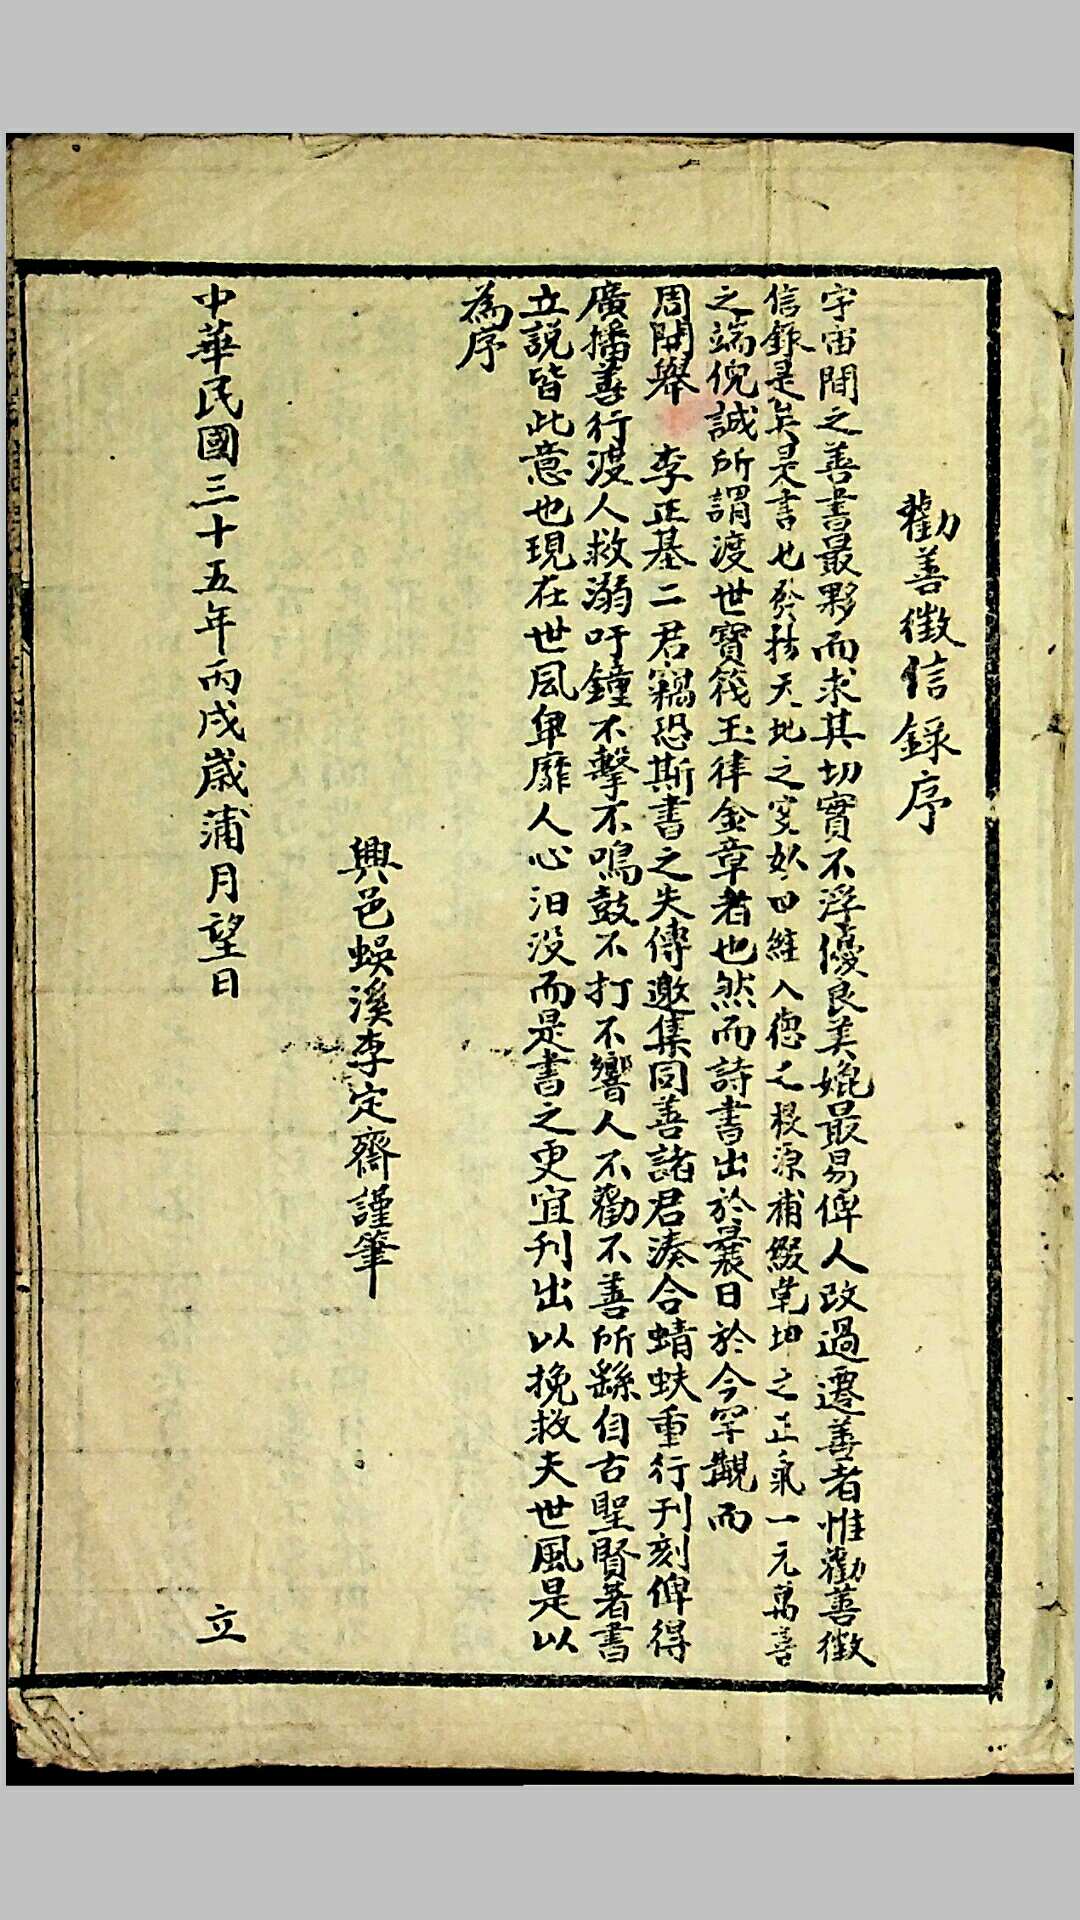 勸善徵信錄序
宇宙間之善書最夥而求其切實不浮優良美媲最易俾人改過遷善者惟勸善徵
信錄是矣是書也發天地之四維入德之根源補綴乾坤之正氣一元萬善
之端倪誠所謂渡世寶筏玉律金章者也然而詩書出於曩日於今罕觀而
周開舉 李正基二君竊恐斯書之失傳邀集同善諸君湊合蜻蚨重行刊刻俾得
廣播善行渡人救溺吁鐘不擊不鳴鼓不打不響人不勸不善所繇自古聖賢著書
立説皆此意也現在世風卑靡人心汩没而是書之更宜刊出以挽救夫世風是以
為序
興邑蜈溪李定齋謹筆
中華民國三十五年丙戌歲蒲月望日 立